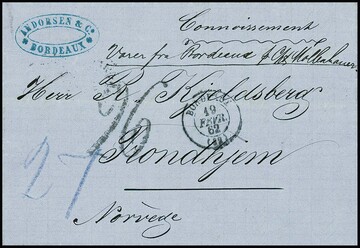 ANDORSEN & Cº
BORDEAUX
Connoissement
Varer fra Bordeaux p. Mollenhauer
Herr P. Kjeldsberg
BORDEAUX
19
FEVR.
62
Trondhjem
27
Norvède